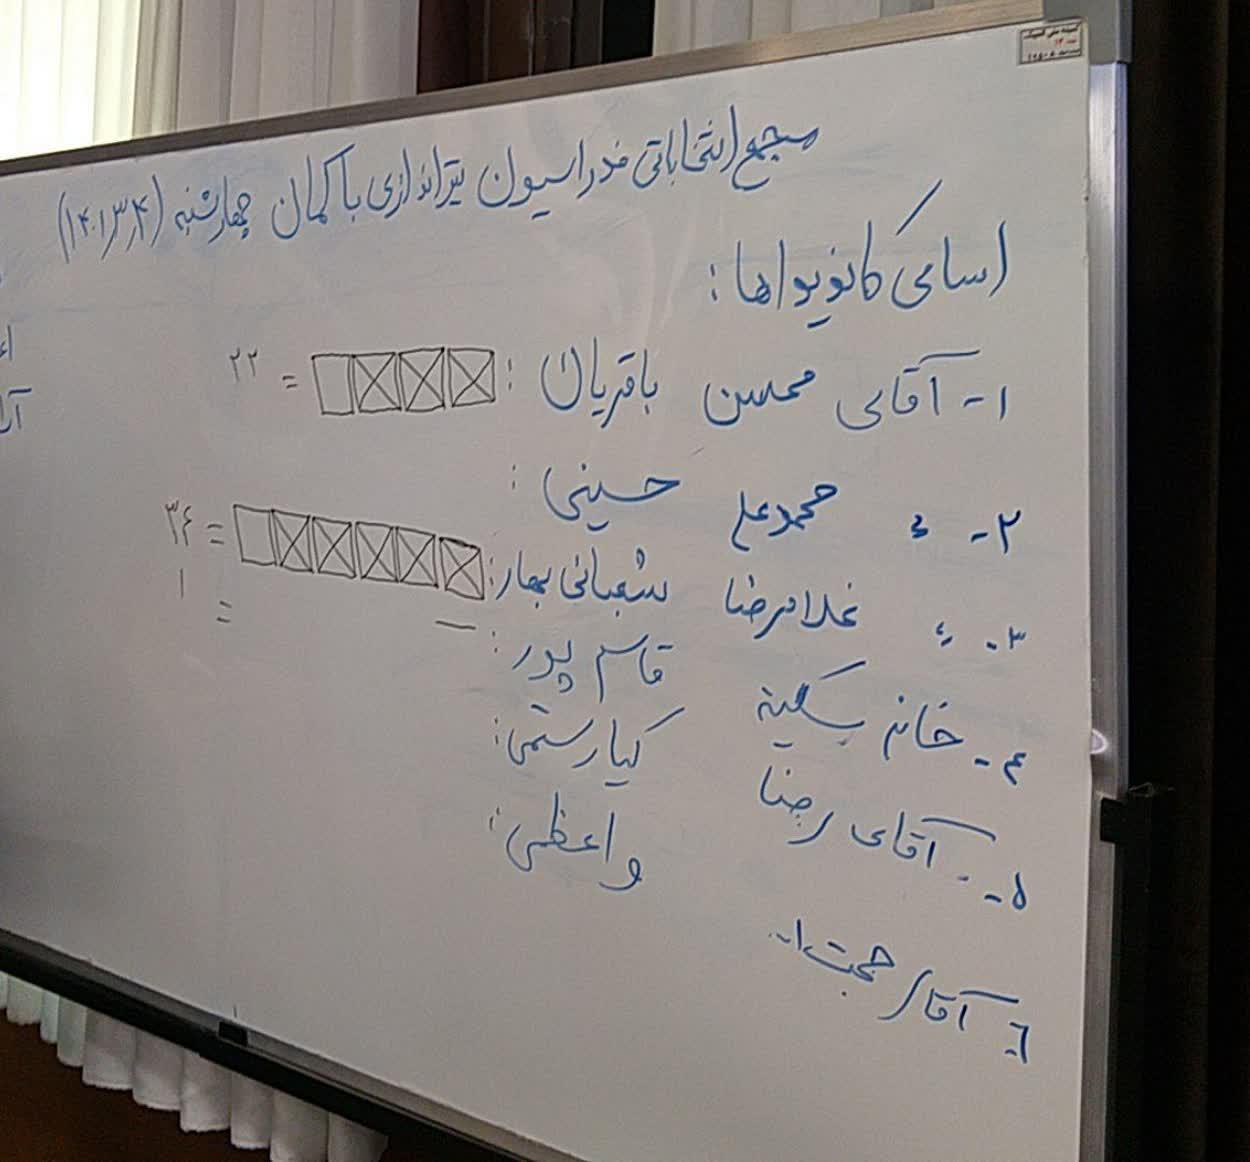 مجمع انتخاباتی فدراسیون تیراندازی با کمان چهارشنبه (۱۴۰۱,۳,۴)
اسامی کاندیداها :
۱- آقای محسن باقریان : = ۲۲
۲- ، محمدعلی حسینی :
۳- ، غلامرضا شعبانی بهار : = ۳۶
۴- خانم سکینه قاسم پور : = ۱
۵- آقای رضا کیارستمی :
۶- آقای حجت ا.. واعظی :